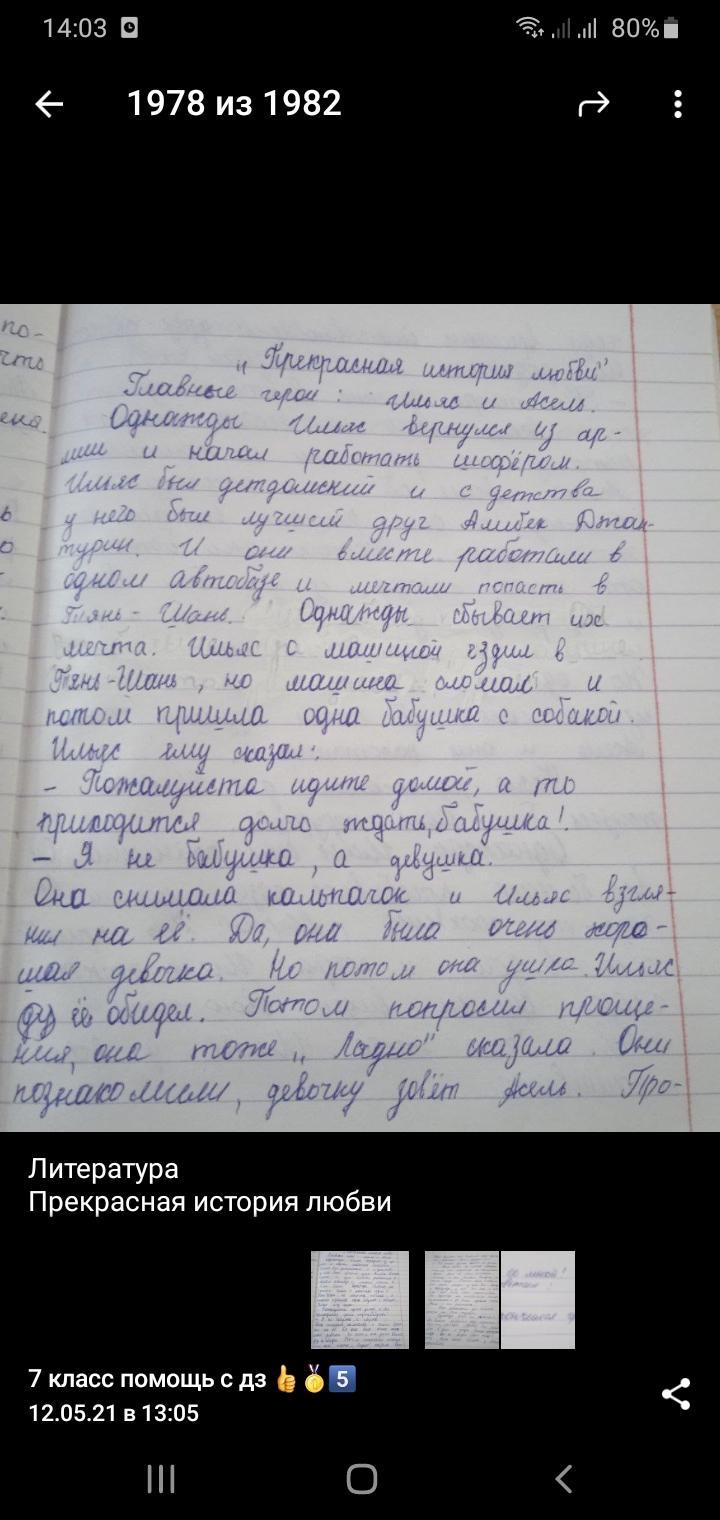 14:03
80%
1978 из 1982
по-
что
ена.
ь
о
„Прекрасная история любви"
Главные герои: Ильяс и Асель.
Однажды Ильяс вернулся из ар-
мии и начал работать шофёром.
Ильяс был детдомский и с детства
у него был лучший друг Алибек Джан-
турин. И они вместе работали в
одном автобазе и мечтали попасть в
Тянь-Шань. Однажды сбывает их
мечта. Ильяс с машиной ездил в
Тянь-Шань, но машина сломал и
потом пришла одна бабушка с собакой.
Ильяс ему сказал:
- Пожалуйста идите домой, а то
приходится долго ждать, бабушка!
- Я не бабушка, а девушка.
Она снимала калпачок и Ильяс взгля-
нил на её. Да, она была очень хоро-
шая девочка. Но потом она ушла. Ильяс
её обидел. Потом попросил проще-
ния, она тоже „Ладно" сказала. Они
познакомили, девочку зовёт Асель. Про-
Литература
Прекрасная история любви
7 класс помощь с дз 👍🥇5️⃣
12.05.21 в 13:05